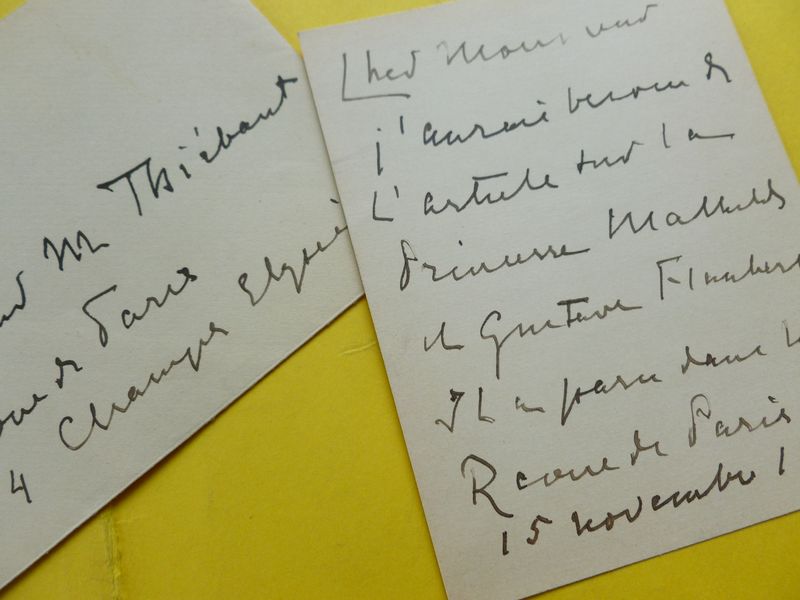 M Thiébaut
de Paris
4 Champs Elysée
Cher Monsieur
j'aurais besoin de
L'article sur la
Princesse Mathilde
et Gustave Flaubert
Il a paru dans
Revue de Paris
15 novembre 1